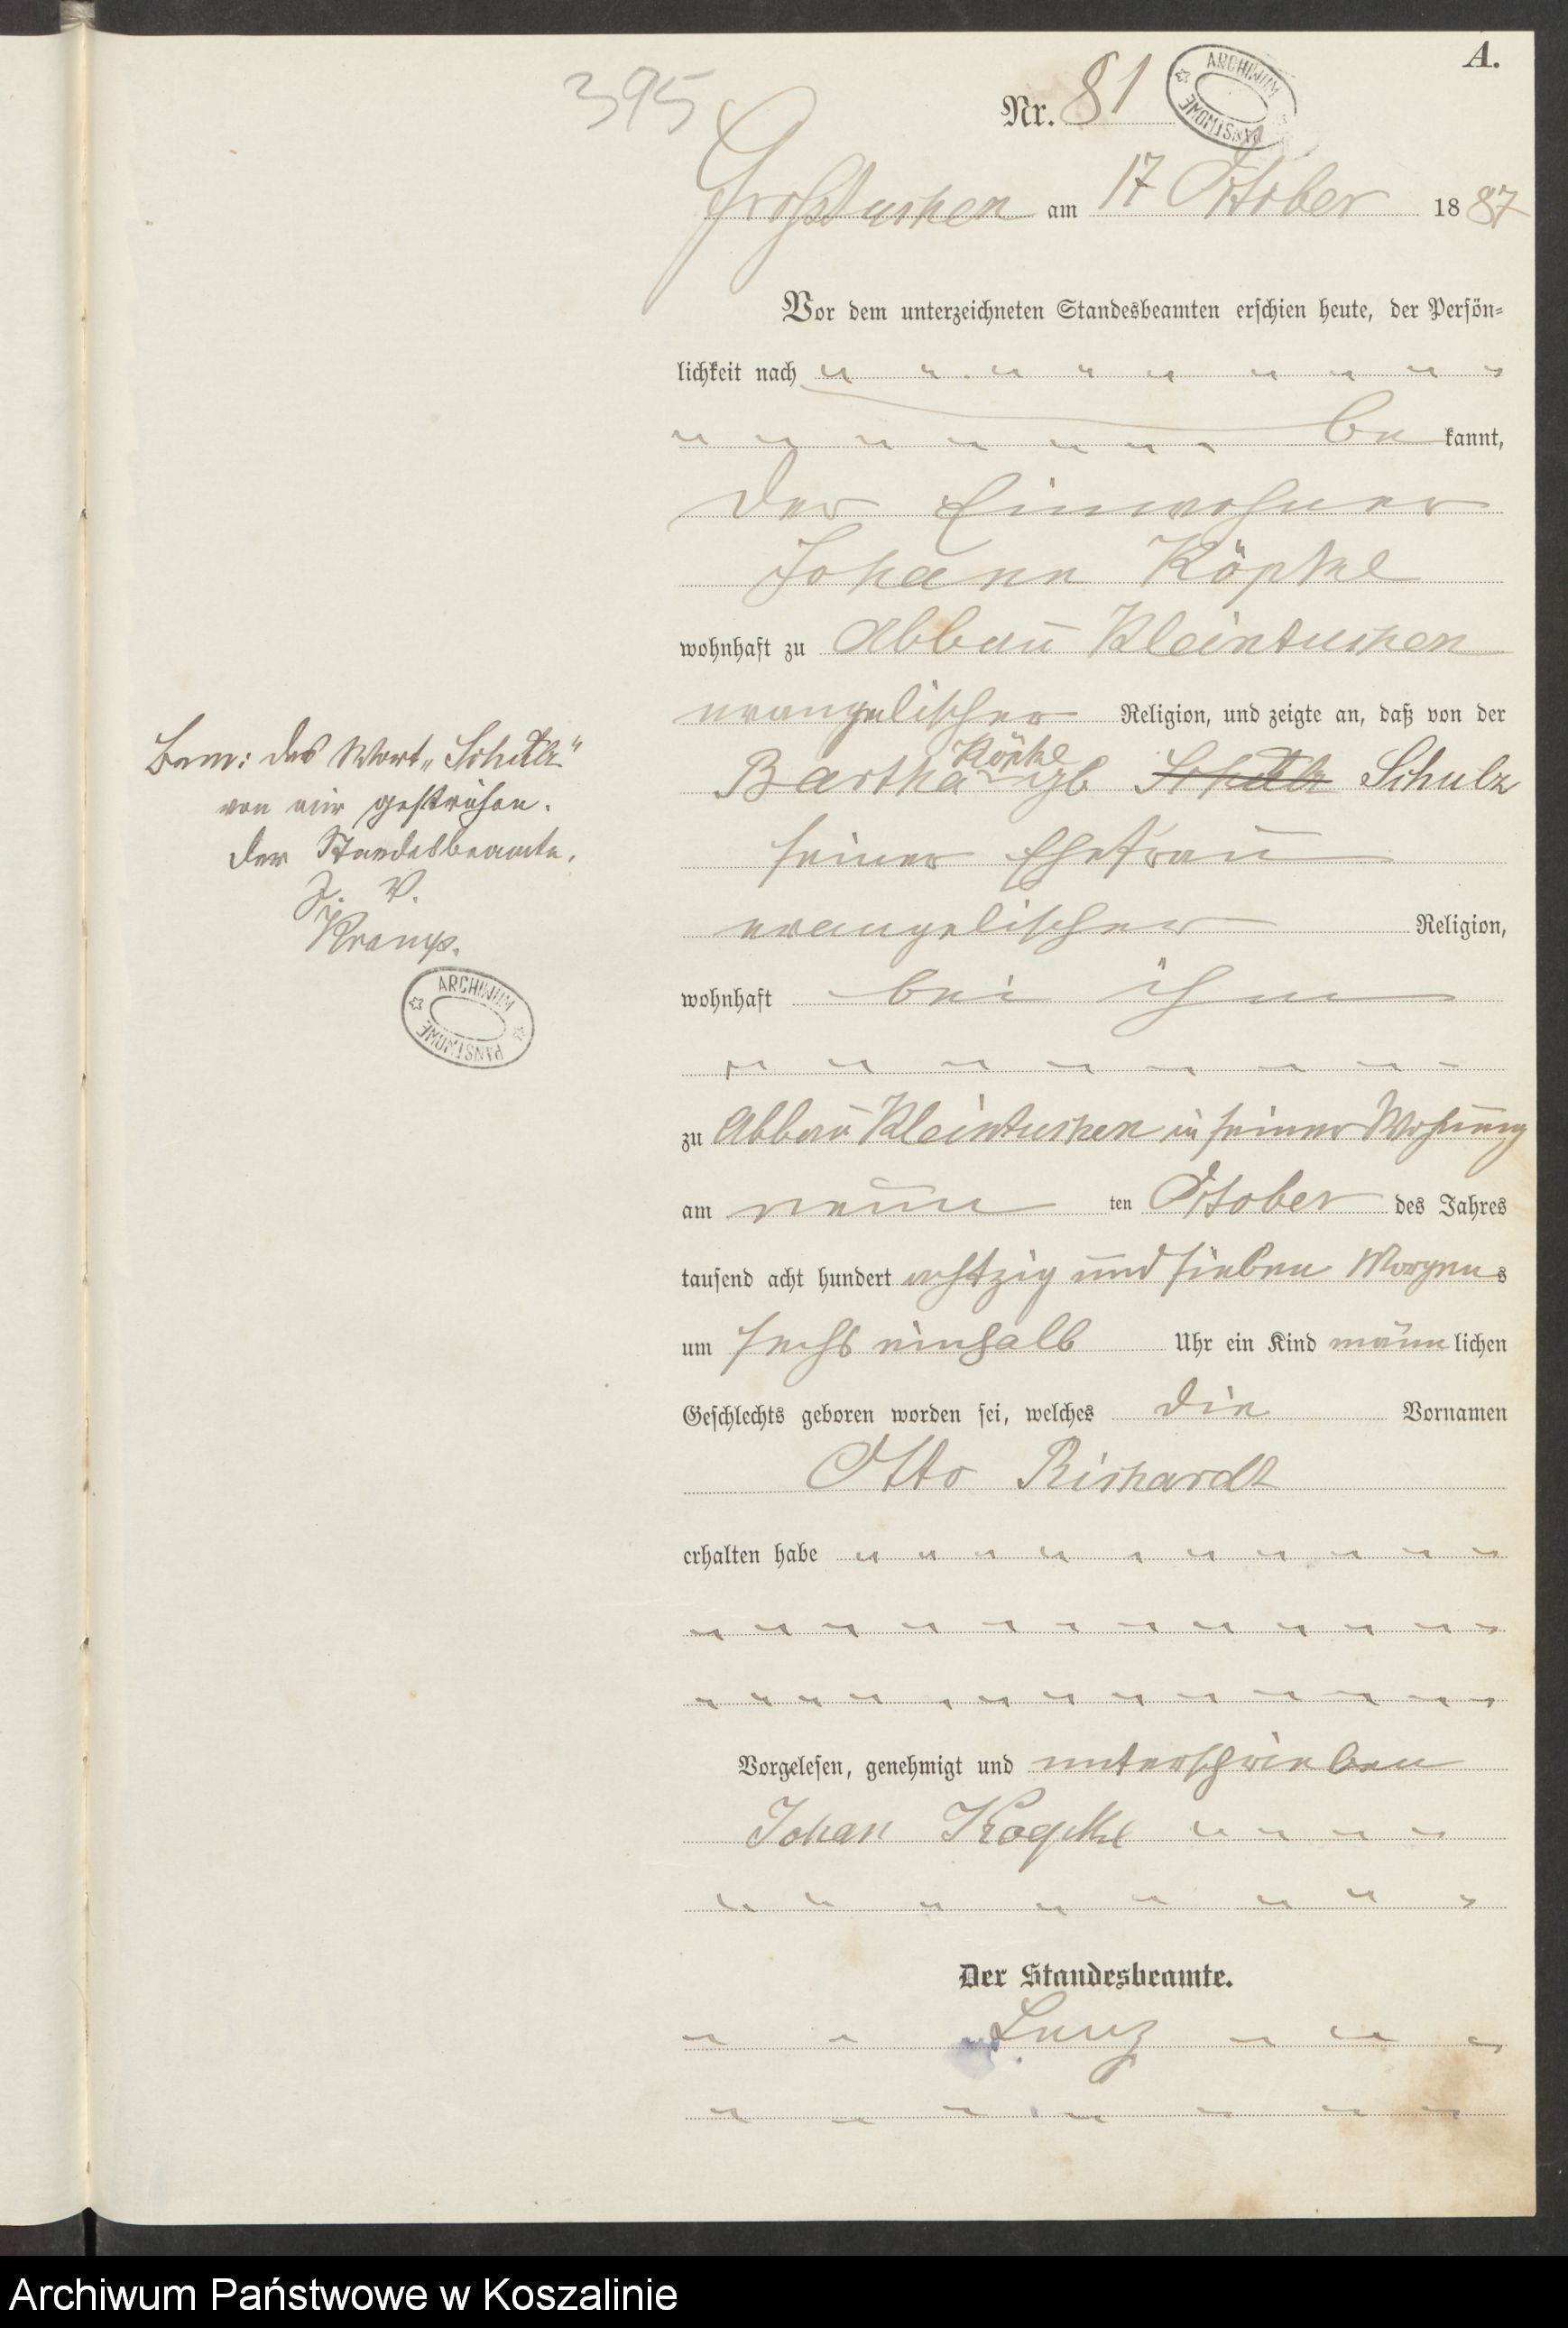 A.
395
Nr. 81
ARCHIWUM PAŃSTWOWE
Großtuchen am 17 October 1887
Vor dem unterzeichneten Standesbeamten erschien heute, der Persön-
lichkeit nach
be kannt,
der Einwohner
Johann Köpke
wohnhaft zu Abbau Kleintuchen
evangelischer Religion, und zeigte an, daß von der
Köpke
Bertha gb Schulz
seiner Ehefrau
evangelischer Religion,
wohnhaft bei ihm
zu Abbau Kleintuchen in seiner Wohnung
am neun ten October des Jahres
tausend acht hundert achtzig und sieben Morgens
um sechs einhalb Uhr ein Kind männlichen
Geschlechts geboren worden sei, welches die Vornamen
Otto Richardt
erhalten habe
Vorgelesen, genehmigt und unterschrieben
Johan Koepke
Der Standesbeamte.
Bem: das Wort
von mir gestrichen.
Der Standesbeamte.
J. V.
Kramp.
ARCHIWUM PAŃSTWOWE
Archiwum Państwowe w Koszalinie